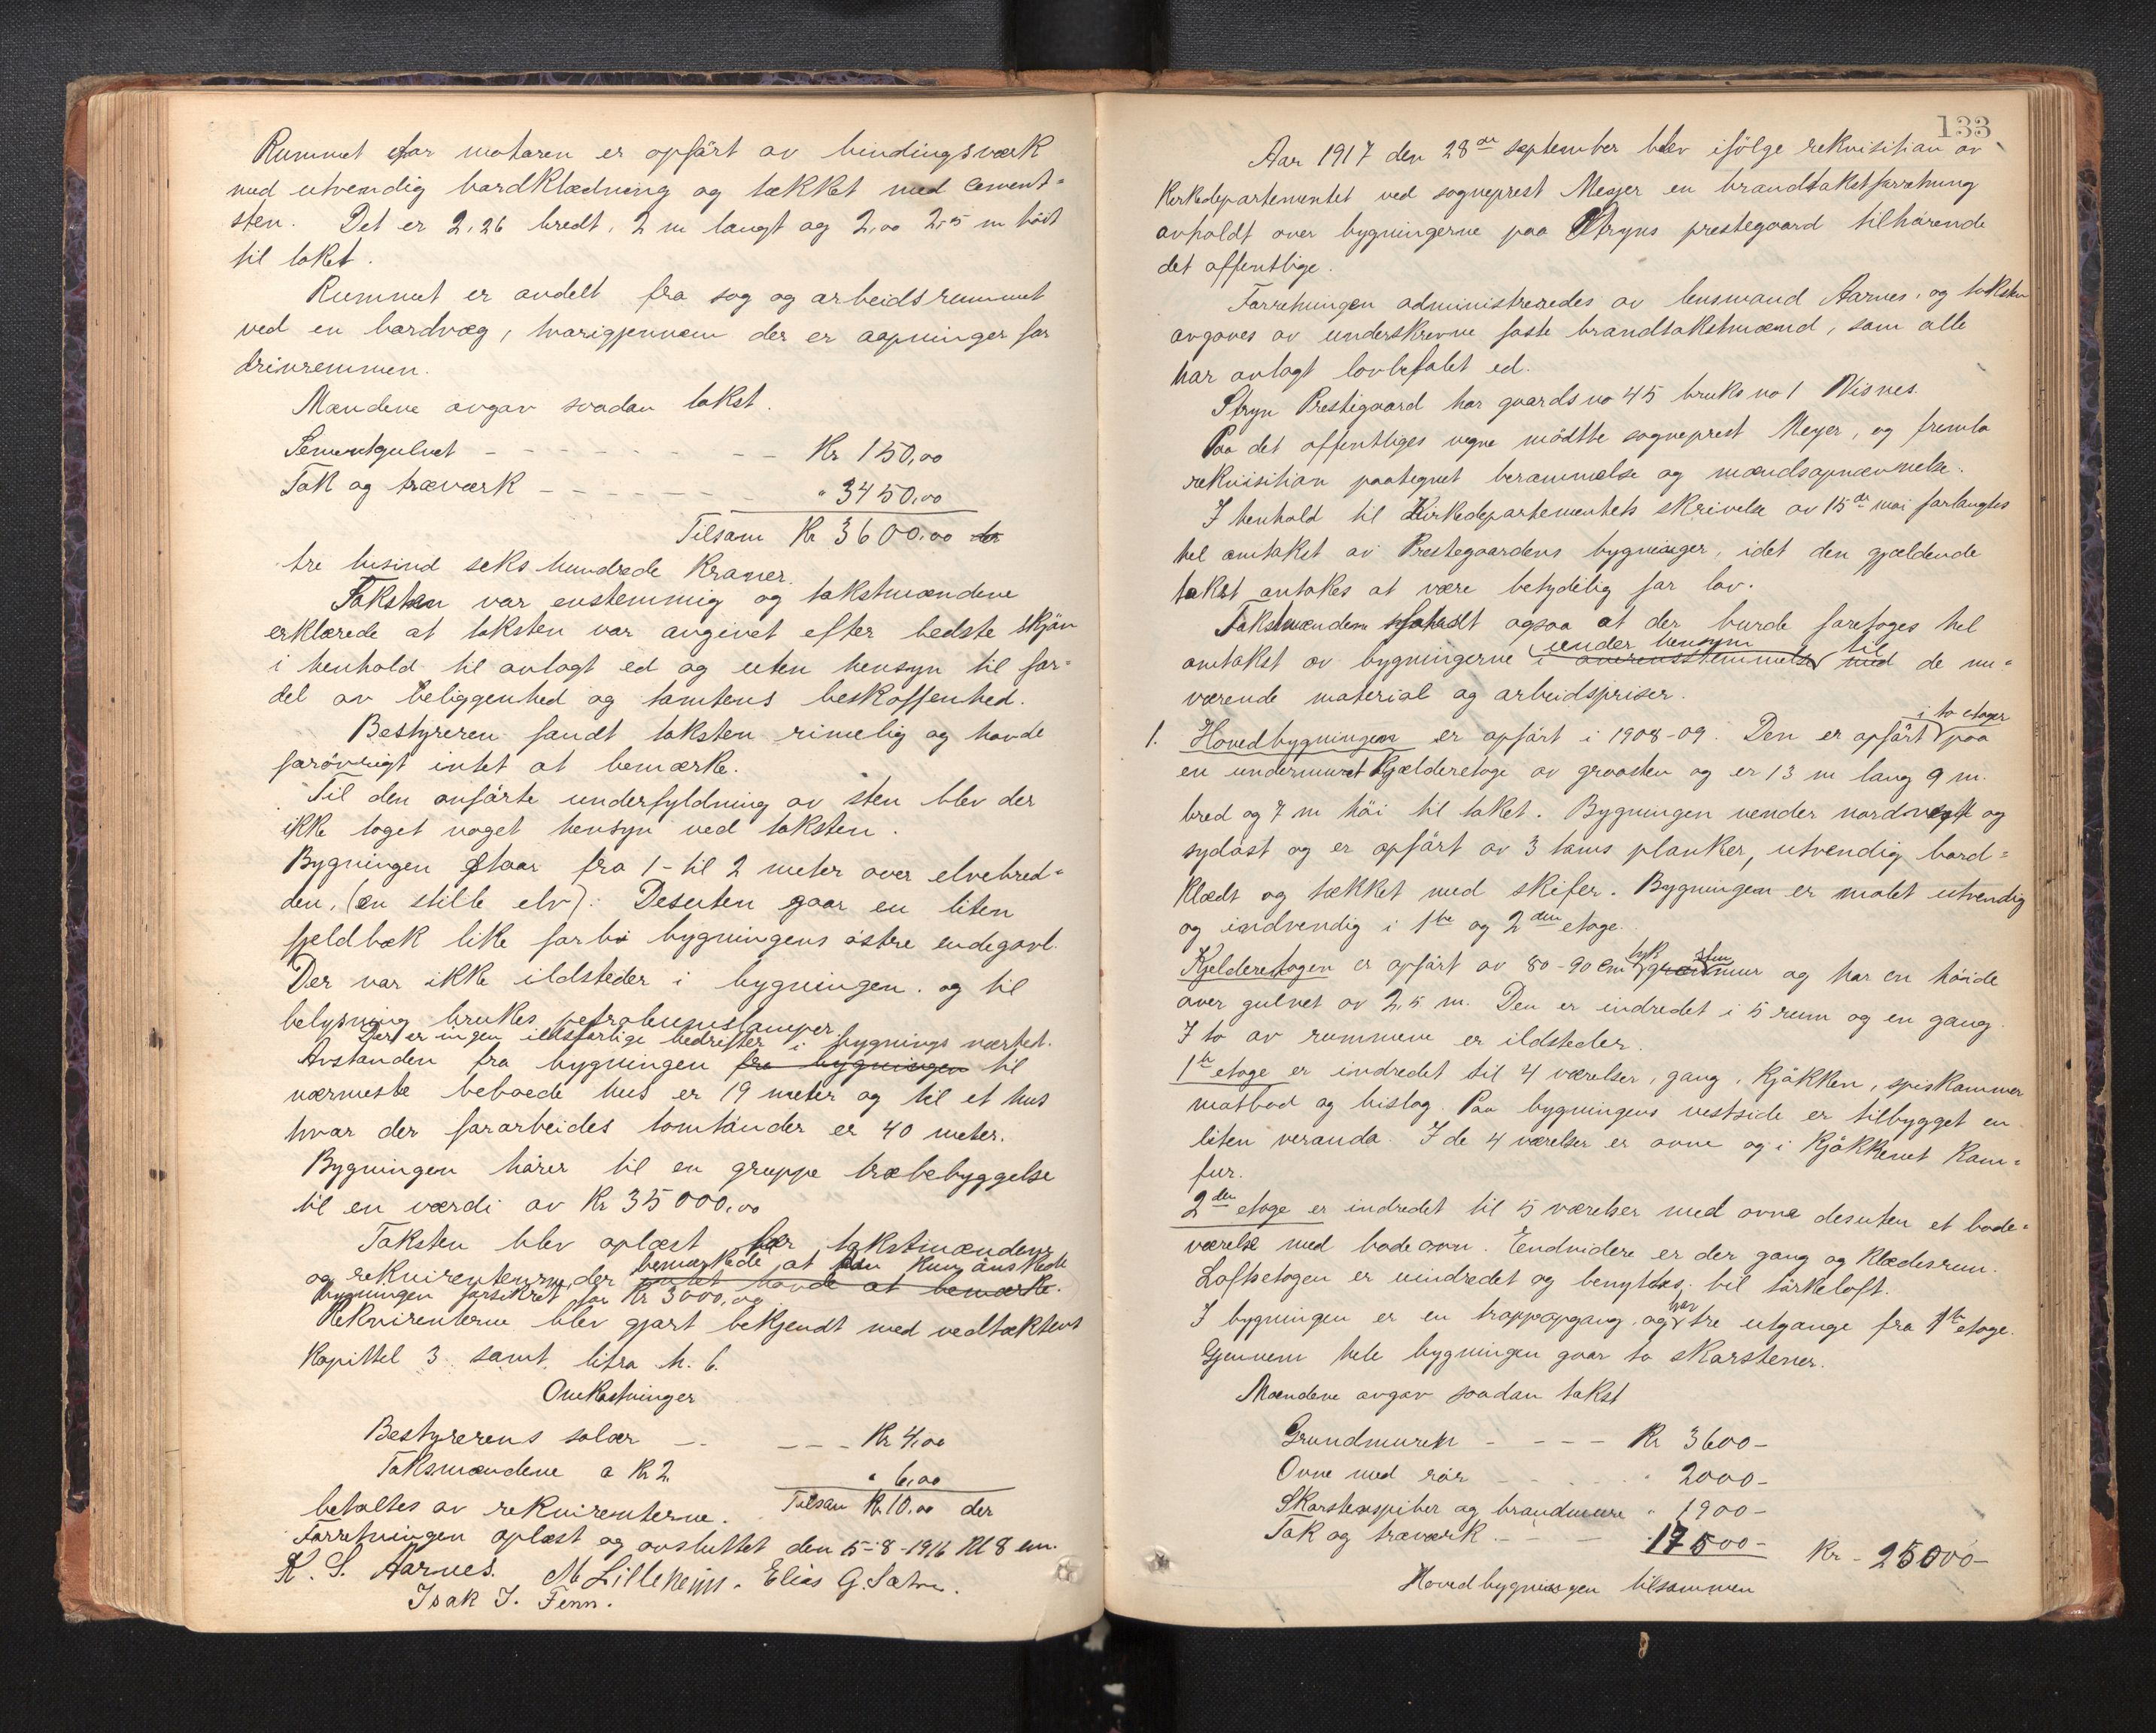 Rummet for motoren er opført av bindingsværk
med utvendig bordklædning og tækket med cement-
sten. Det er 2,26 bredt, 2 m langt og 2,00 2,5 m høit
til taket.
Rummet er avdelt fra sag og arbeidsrummet
ved en bordvæg, hvorigjennem der er aapninger for
drivremmen.
Mændene avgav saadan takst.
Sementgulvet - - - - - - - - Kr 150,00
Tak og træværk - - - - - - - " 3450,00
Tilsam Kr 3600,00
tre tusind seks hundrede kroner.
Taksten var enstemmig og takstmændene
erklærede at taksten var avgivet efter bedste skjøn
i henhold til avlagt ed og uten hensyn til for-
del av beliggenhed og tomtens beskaffenhed.
Bestyreren fandt taksten rimelig og havde
forøvrigt intet at bemærke.
Til den anførte underfyldning av sten blev der
ikke taget noget hensyn ved taksten.
Bygningen staar fra 1 - til 2 meter over elvebred-
den, (en stille elv). Desuten gaar en liten
fjeldbæk like forbi bygningens østre endegavl.
Der var ikke ildsteder i bygningen. og til
belysning brukes petroleumslamper.
Der er ingen ildsfarlige bedrifter i bygnings nærhet.
Avstanden fra bygningen fra bygningen til
nærmeste beboede hus er 19 meter og til et hus
hvor der forarbeides tomtønder er 40 meter.
Bygningen hører til en gruppe træbebyggelse
til en værdi av Kr 35000,00
Taksten blev oplæst for takstmændene
og rekvirenterne, der bemærkede at han kun ønskede
intet havde at bemærke.
bygningen forsikret for Kr 3000,00
Rekvirenterne blev gjort bekjendt med vedtæktens
kapittel 3 samt litra h. 6.
Omkostninger
Bestyrerens salær - - - - - Kr 4,00
Taksmændene a Kr 2. " 6,00
Tilsam Kr 10,00 der
betaltes av rekvirenterne.
Forretningen oplæst og avsluttet den 5-8-1916 Kl 8 em.
K. S. Aarnes. M Lilleheim. Elias G. Sætre.
Isak J. Fenn.
133
Aar 1917 den 28de september blev ifølge rekvisition av
Kirkedepartementet ved sogneprest Meyer en brandtakstforretning
avholdt over bygningerne paa Stryns prestegaard tilhørende
det offentlige.
Forretningen administreredes av lensmand Aarnes, og taksten
avgaves av underskrevne faste brandtakstmænd, som alle
har avlagt lovbefalet ed.
Stryn Prestegaard har gaards no 45 bruks no 1 Visnes.
Paa det offentliges vegne mødtte sogneprest Meyer, og fremla
rekvisition paategnet berammelse og mændsopnævnelse.
I henhold til Kirkedepartementets skrivelse av 15de mai forlangtes
hel omtakst av Prestegaardens bygninger, idet den gjældende
takst antakes at være betydelig for lav.
Takstmændene fandt ogsaa at der burde foretages hel
under hensyn til
omtakst av bygningerne i overensstemmelse med de nu-
værende material og arbeidspriser.
i to etager
1. Hovedbygningen er opført i 1908-09. Den er opført paa
en undermuret kjælderetage av graasten og er 13 m lang 9 m.
bred og 7 m høi til taket. Bygningen vender nordvest og
sydøst og er opført av 3 toms planker, utvendig bord-
klædt og tækket med skifer. Bygningen er malet utvendig
og indvendig i 1ste og 2den etage.
Kjelderetagen er opført av 80-90 cm tyk stenmur og har en høide
over gulvet av 2,5 m. Den er indredet i 5 rum og en gang.
I to av rummene er ildsteder.
1ste etage er indredet til 4 værelser, gang, kjøkken, spiskammer
matbod og bislag. Paa bygningens vestside er tilbygget en
liten veranda. I de 4 værelser er ovne og i kjøkkenet kom-
fur.
2den etage er indredet til 5 værelser med ovne desuten et bade-
værelse med badeovn. Endvidere er der gang og klædesrum.
Loftsetagen er uindredet og benyttes til tørkeloft.
I bygningen er en trappopgang og har tre utgange fra 1ste etage.
Gjennem hele bygningen gaar to skorstener.
Mændene avgav saadan takst
Grundmuren - - - - Kr 3600-
Ovne med rør - - - " 2000-
Skorstenspiber og brandmure " 1900-
Tak og træværk - - - 17500- Kr - 25000-
Hovedbygningen tilsammen